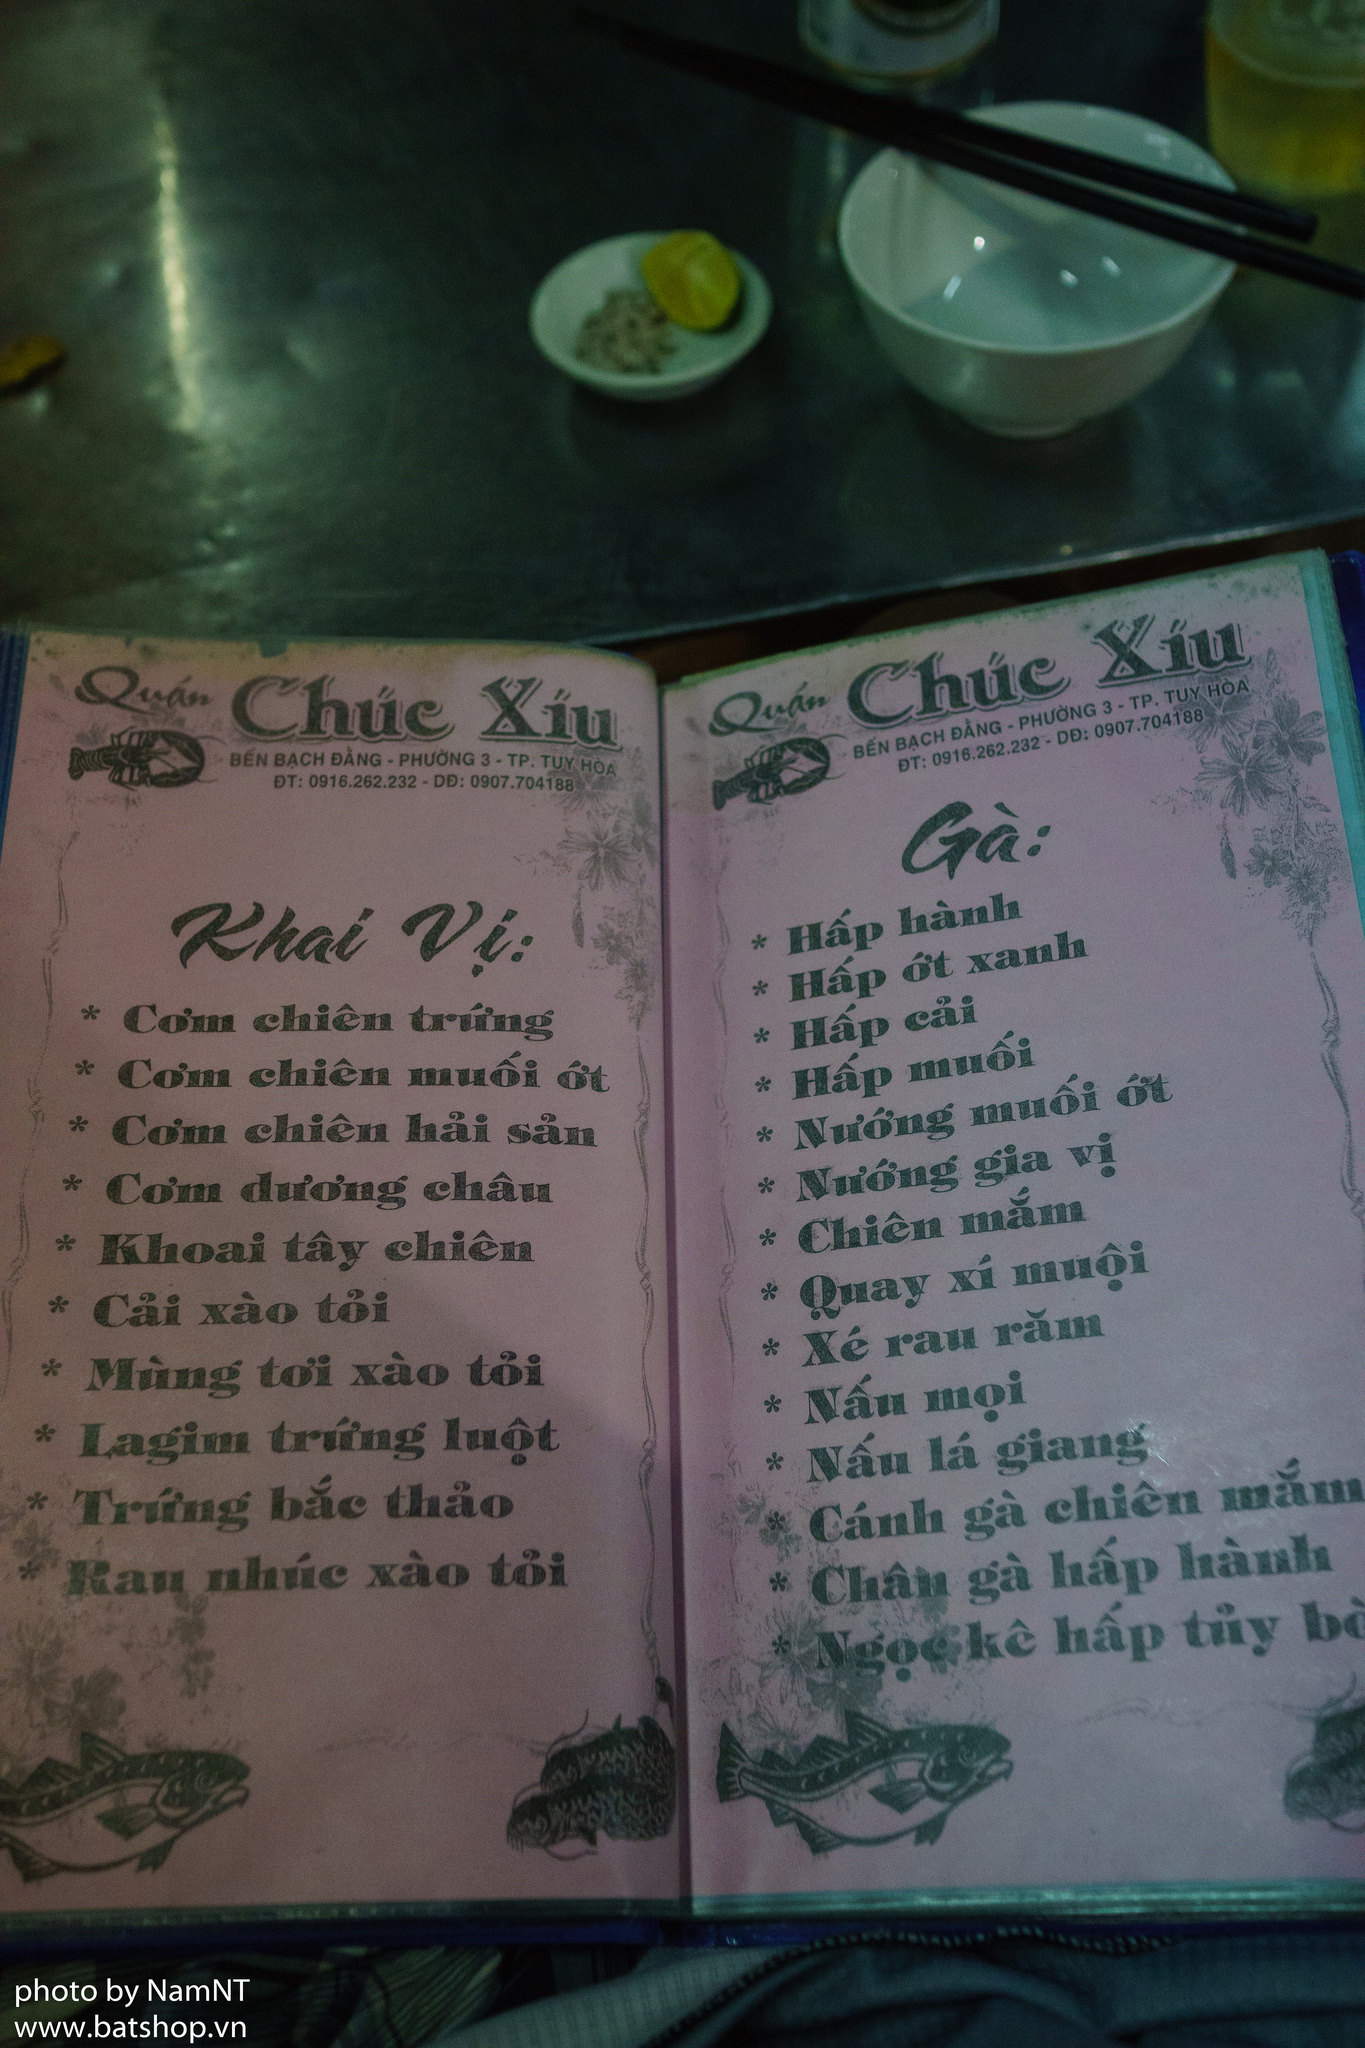 Quán Chúc Xíu
BẾN BẠCH ĐẰNG - PHƯỜNG 3 - TP. TUY HÒA
ĐT: 0916.262.232 - DĐ: 0907.704188
Khai Vị:
* Cơm chiên trứng
* Cơm chiên muối ớt
* Cơm chiên hải sản
* Cơm dương châu
* Khoai tây chiên
* Cải xào tỏi
* Mùng tơi xào tỏi
* Lagim trứng luột
* Trứng bắc thảo
* Rau nhúc xào tỏi
Quán Chúc Xíu
BẾN BẠCH ĐẰNG - PHƯỜNG 3 - TP. TUY HÒA
ĐT: 0916.262.232 - DĐ: 0907.704188
Gà:
* Hấp hành
* Hấp ớt xanh
* Hấp cải
* Hấp muối
* Nướng muối ớt
* Nướng gia vị
* Chiên mắm
* Quay xí muội
* Xé rau răm
* Nấu mọi
* Nấu lá giang
* Cánh gà chiên mắm
* Chân gà hấp hành
* Ngọc kê hấp tủy bò
photo by NamNT
www.batshop.vn